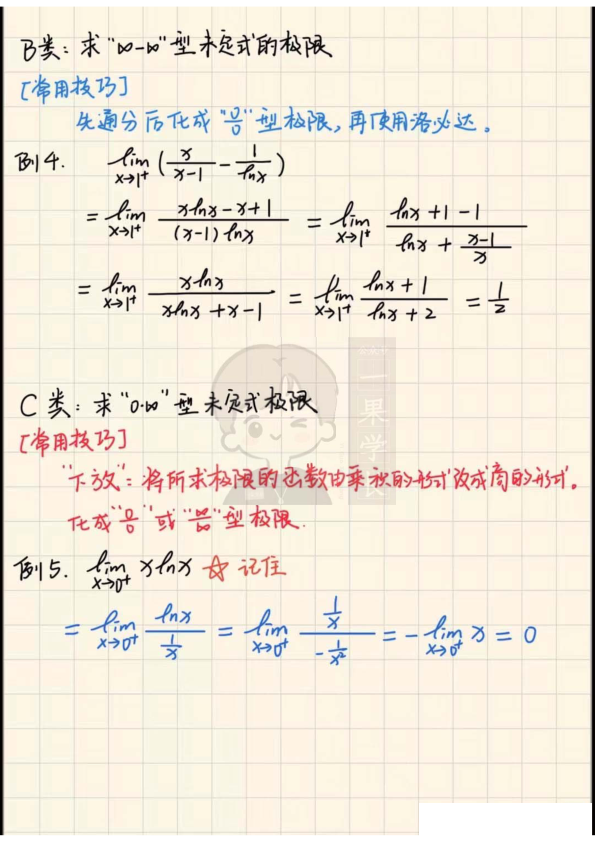 B类：求“∞-∞”型未定式的极限
[常用技巧]
先通分后化成“0/0”型极限，再使用洛必达。
例4. lim x→1⁺ (x/(x-1) - 1/lnx)
= lim x→1⁺ (xlnx-x+1)/((x-1)lnx) = lim x→1⁺ (lnx+1-1)/(lnx + (x-1)/x)
= lim x→1⁺ xlnx/(xlnx+x-1) = lim x→1⁺ (lnx+1)/(lnx+2) = 1/2
C类：求“0·∞”型未定式极限
[常用技巧]
“下放”：将所求极限的函数由乘积的形式改成商的形式。
化成“0/0”或“∞/∞”型极限.
例5. lim x→0⁺ xlnx ☆ 记住
= lim x→0⁺ lnx/(1/x) = lim x→0⁺ (1/x)/(-1/x²) = - lim x→0⁺ x = 0
一果学长